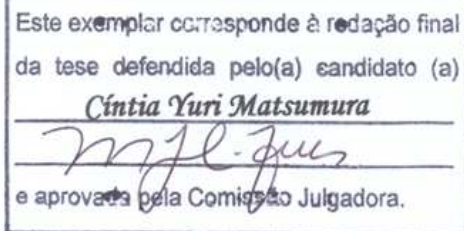 Este exemplar corresponde à redação final
da tese defendida pelo(a) candidato (a)
Cíntia Yuri Matsumura
e aprovada pela Comissão Julgadora.